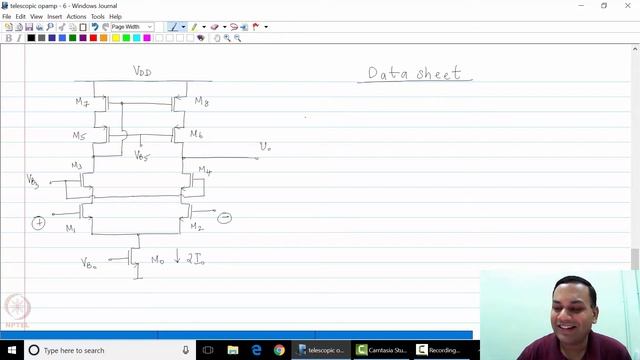 telescopic opamp - 6 - Windows Journal
File Edit View Insert Actions Tools Help
Page Width
Data sheet
VDD
M7 M8
M5 M6
VB5 Vo
M3 M4
VB3
+ −
M1 M2
VB0 M0 ↓ 2I0
NPTEL
Type here to search
telescopic o... Camtasia Stu... Recording...